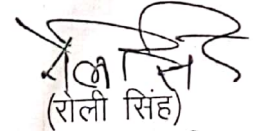 रोली सिंह
(रोली सिंह)